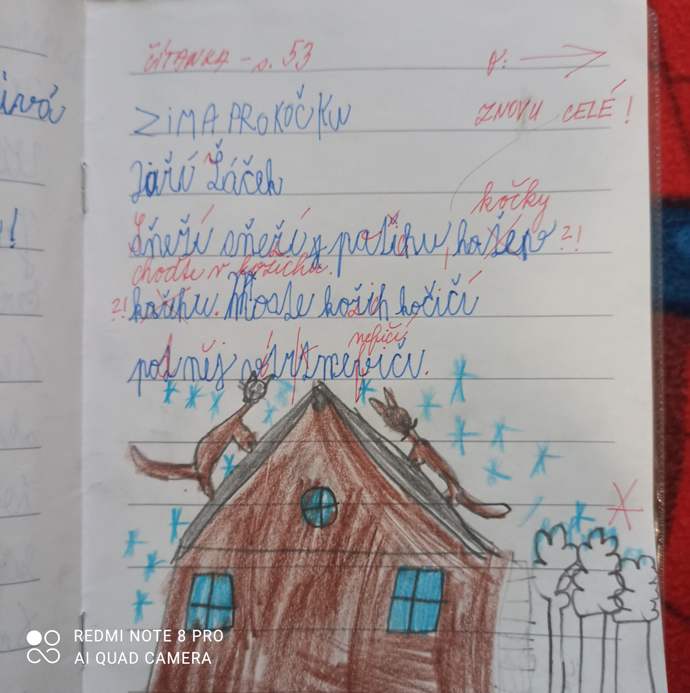 ivá
!
ČÍTANKA - s. 53
P:
ZNOVU CELÉ!
ZiMA PRO KOČKU
Jiří Žáček
kočky
Sněží sněží potichu, ?!
choďte v kožichu.
?! kožihu. Moste kožich kočičí
nefičí
pod něj vítr nefičí.
X
REDMI NOTE 8 PRO
AI QUAD CAMERA